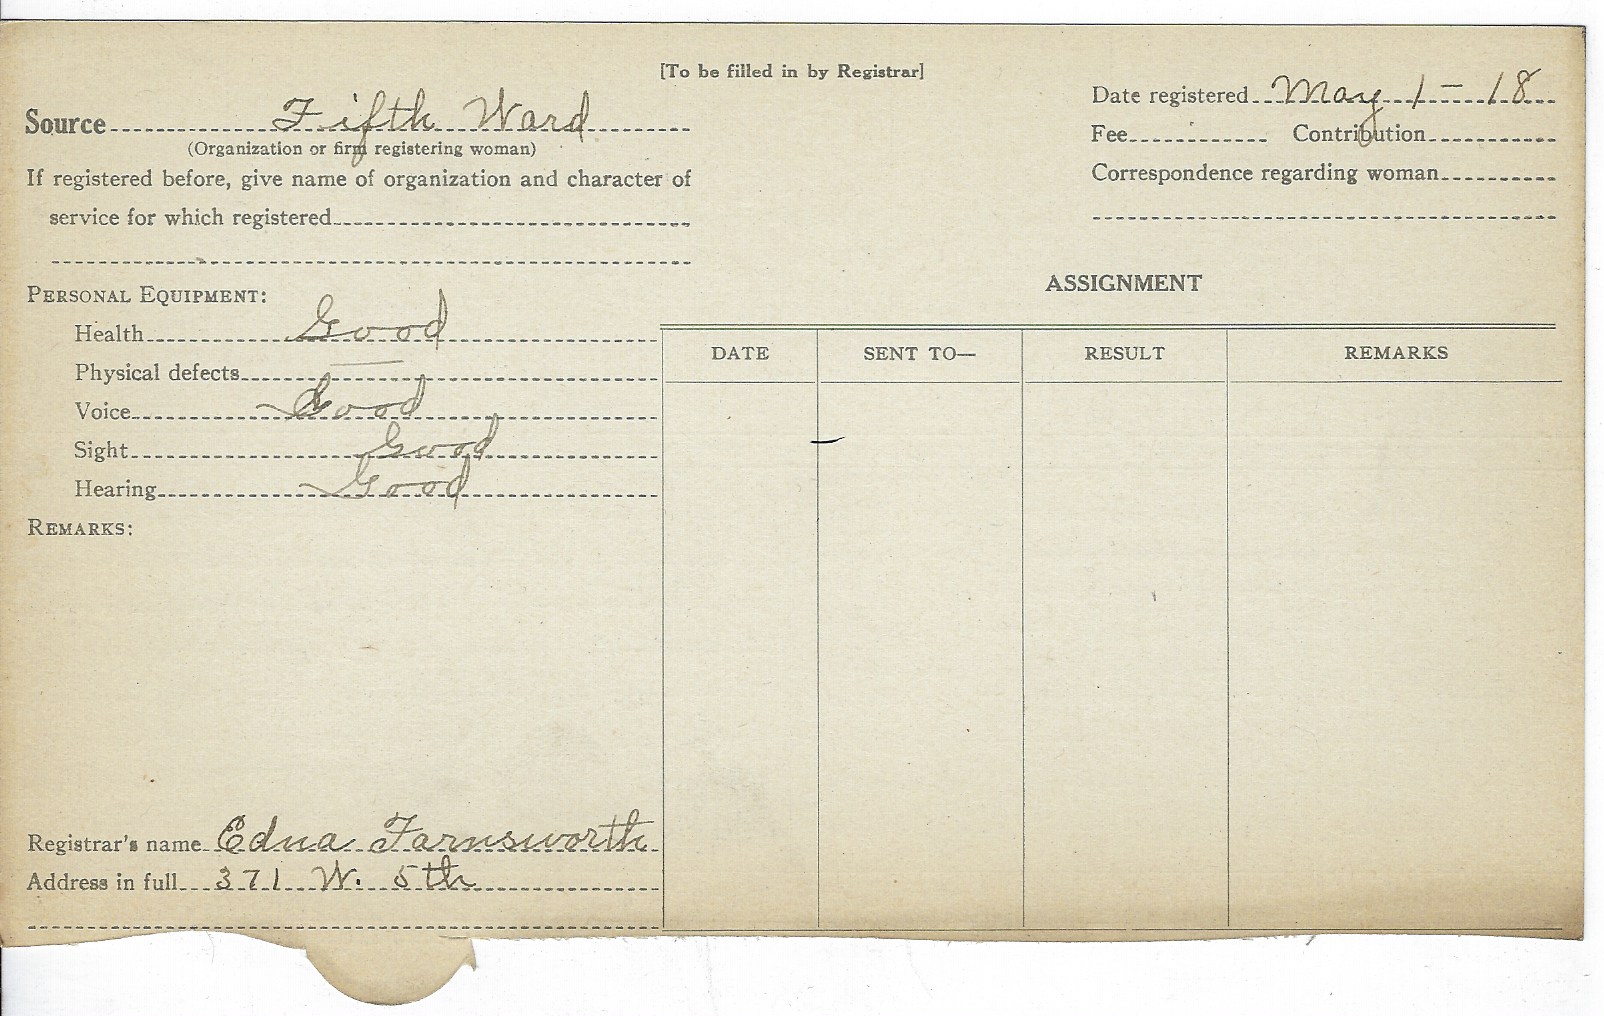 [To be filled in by Registrar]
Source Fifth Ward
(Organization or firm registering woman)
If registered before, give name of organization and character of
service for which registered
Date registered May 1 - 18
Fee Contribution
Correspondence regarding woman
PERSONAL EQUIPMENT:
Health Good
Physical defects —
Voice Good
Sight Good
Hearing Good
REMARKS:
ASSIGNMENT
DATE SENT TO— RESULT REMARKS
Registrar's name Edna Farnsworth
Address in full 371 W. 5th